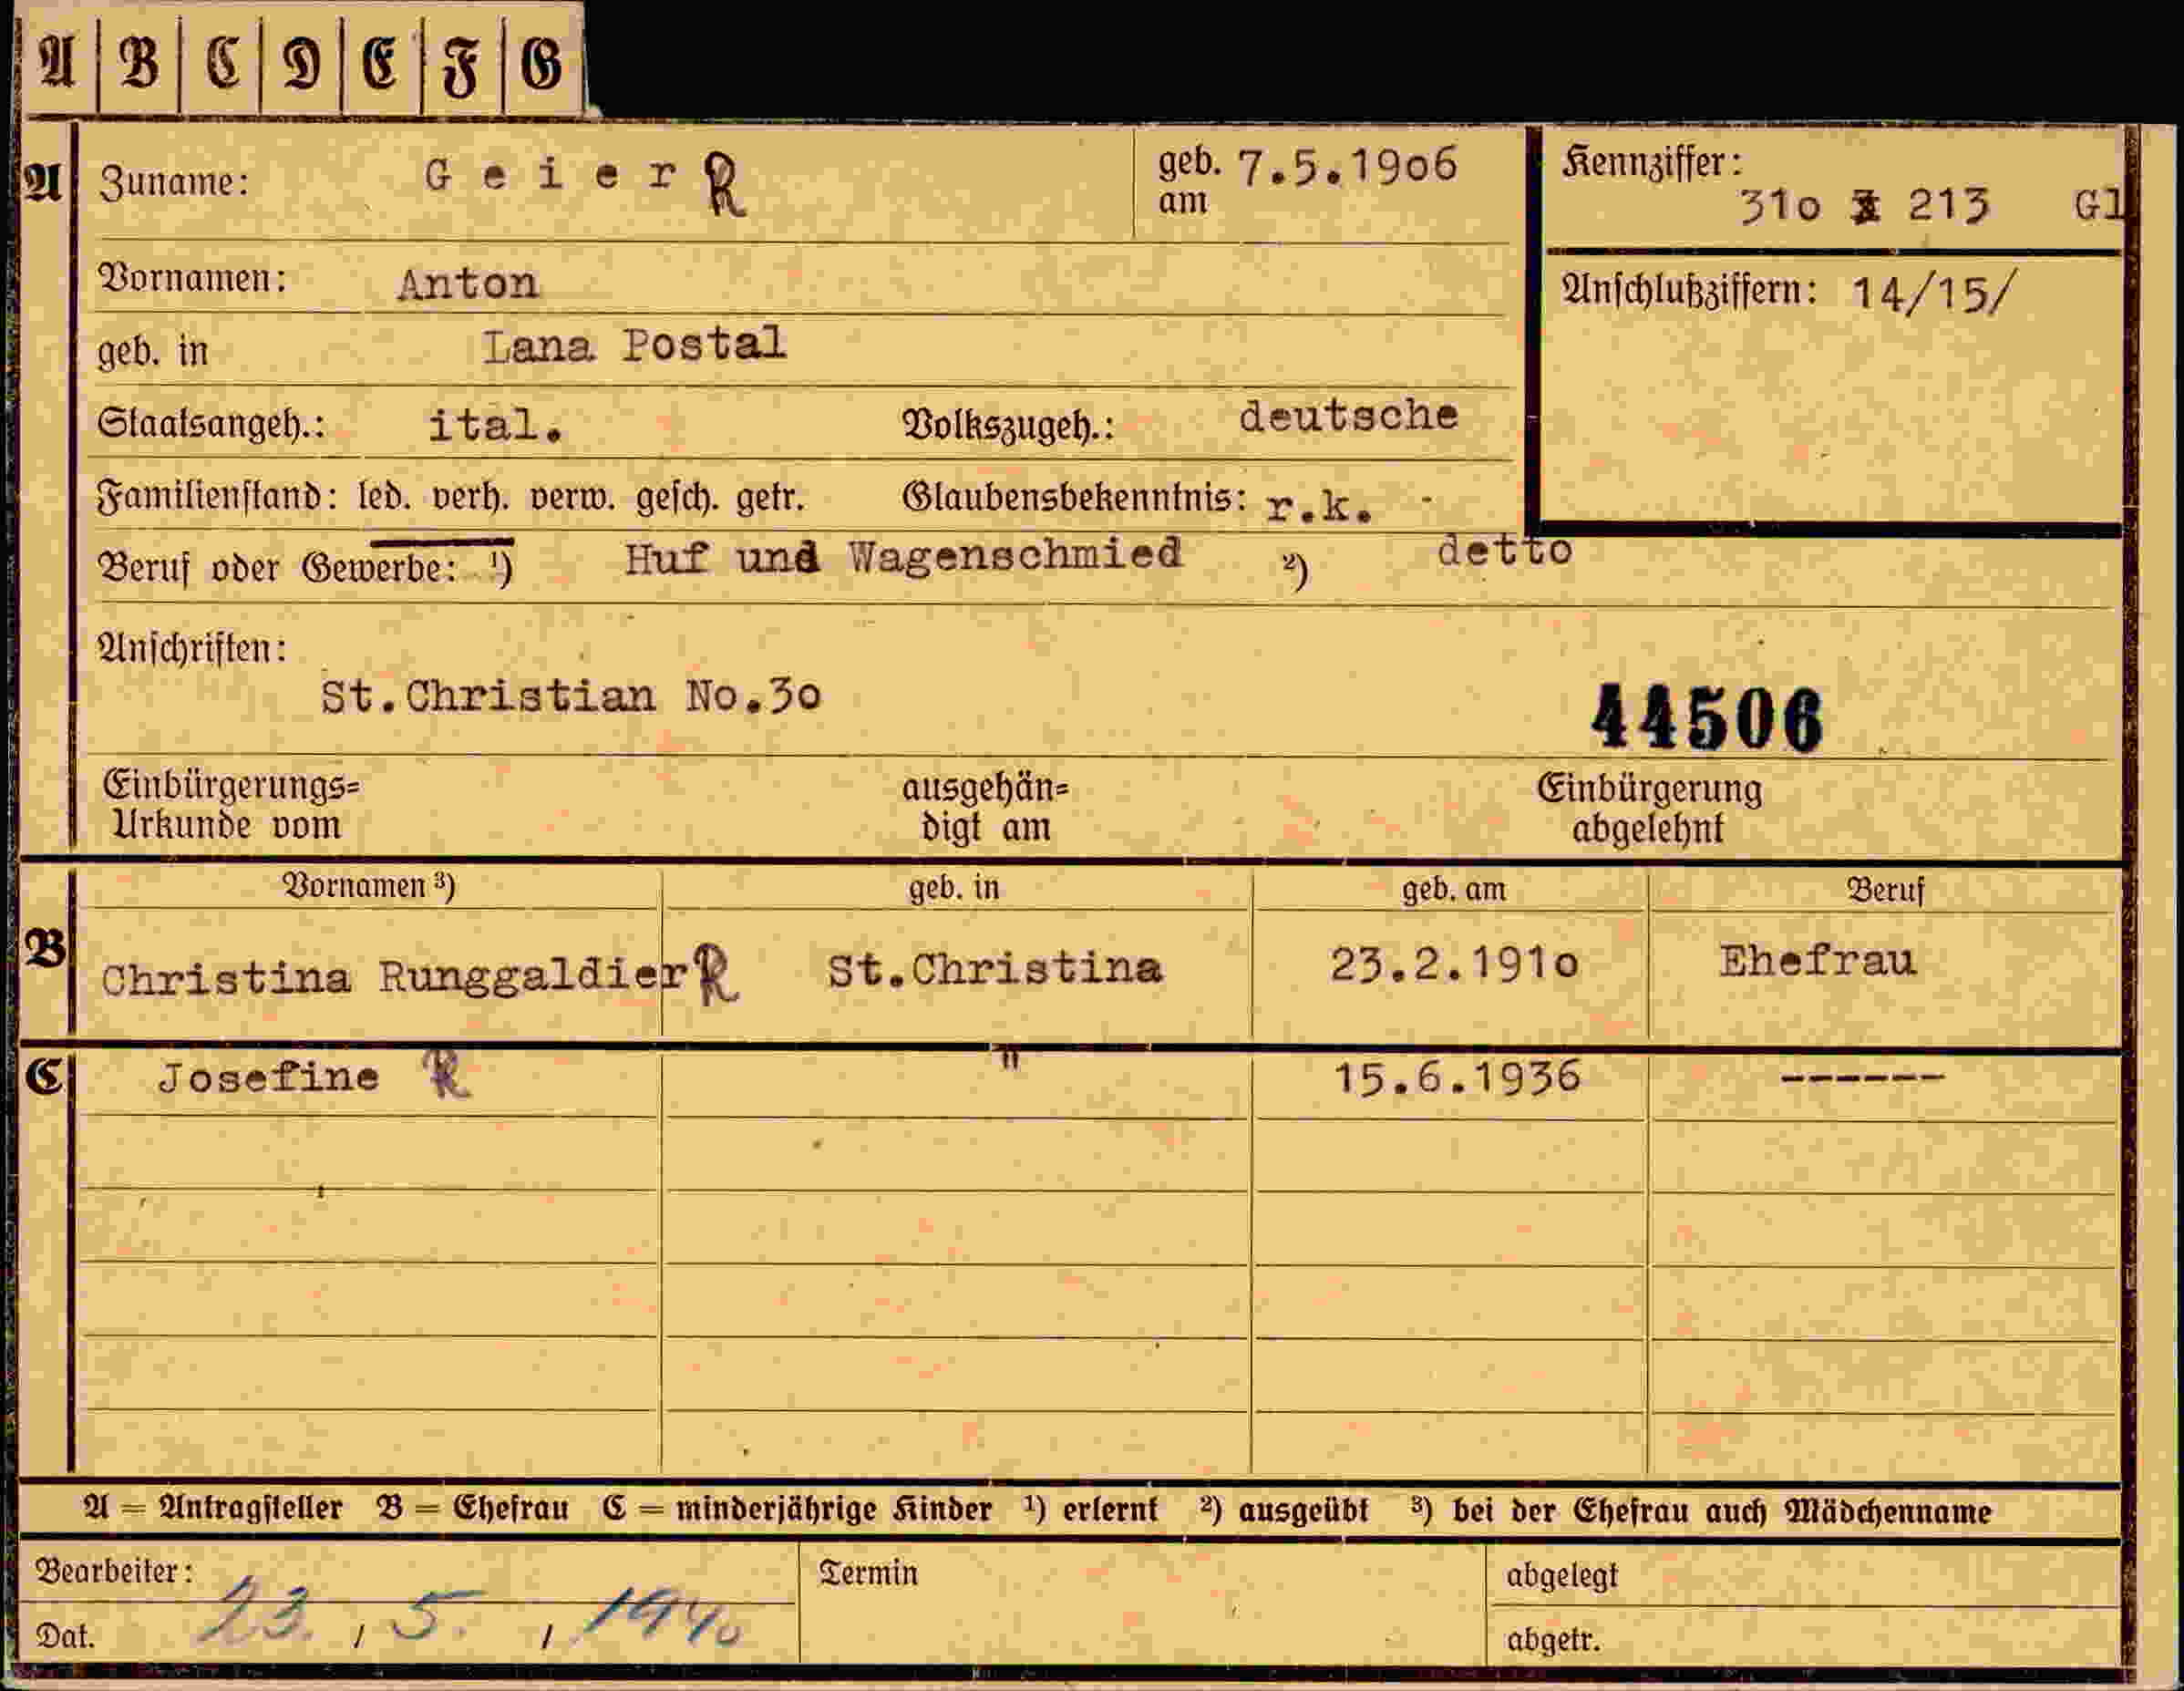 A B C D E F G
A Zuname: Geier R geb. am 7.5.19o6 Kennziffer:
31o 213 Gl
Vornamen: Anton Anschlußziffern: 14/15/
geb. in Lana Postal
Staatsangeh.: ital. Volkszugeh.: deutsche
Familienstand: led. verh. verw. gesch. getr. Glaubensbekenntnis: r.k.
Beruf oder Gewerbe: ¹) Huf und Wagenschmied ²) detto
Anschriften:
St.Christian No.3o 44506
Einbürgerungs= ausgehän= Einbürgerung
Urkunde vom digt am abgelehnt
Vornamen ³) geb. in geb. am Beruf
B Christina Runggaldier R St.Christina 23.2.191o Ehefrau
C Josefine R " 15.6.1936 ------
A = Antragsteller B = Ehefrau C = minderjährige Kinder ¹) erlernt ²) ausgeübt ³) bei der Ehefrau auch Mädchenname
Bearbeiter: Termin abgelegt
Dat. 23. / 5. / 1940 abgetr.